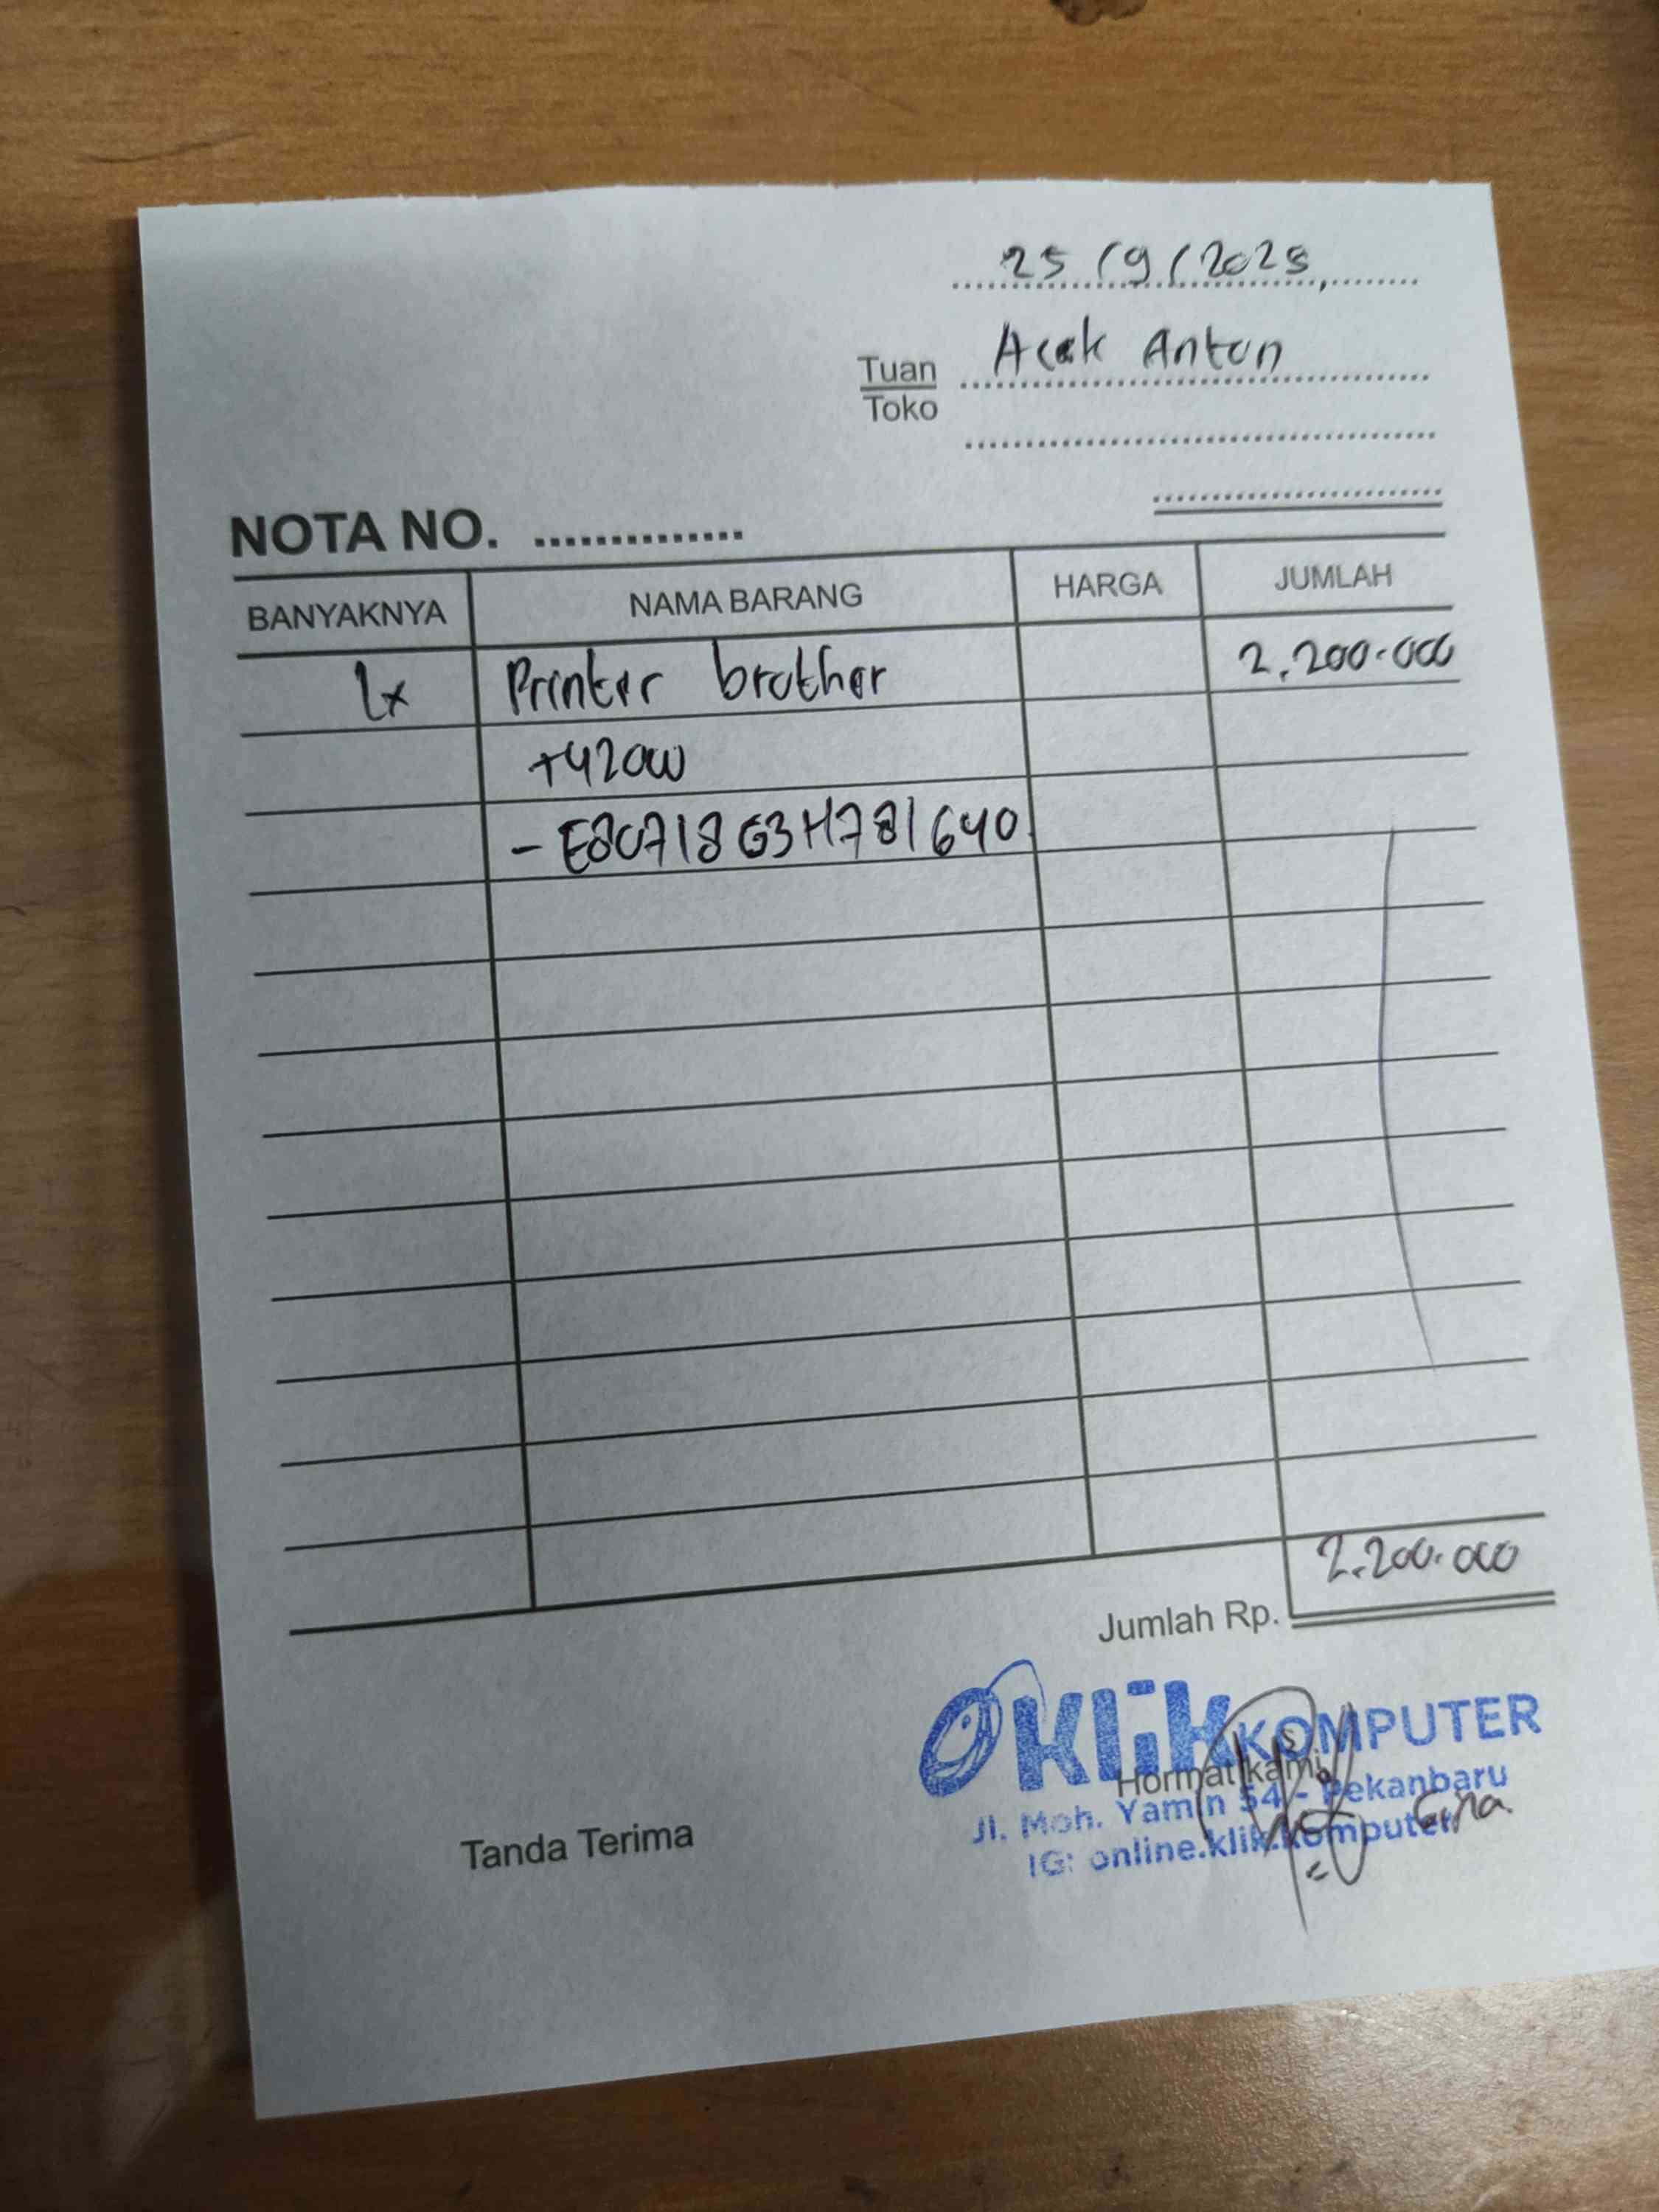 25/9/2025,
Tuan
Acek Anton
Toko
NOTA NO. ..............
BANYAKNYA NAMA BARANG HARGA JUMLAH
1x Printer brother 2.200.000
T420W
- E80718G3H781640
2.200.000
Jumlah Rp.
KLiK KOMPUTER
Hormat kami,
Jl. Moh. Yamin 54 - Pekanbaru
IG: online.klik.komputer
Tanda Terima